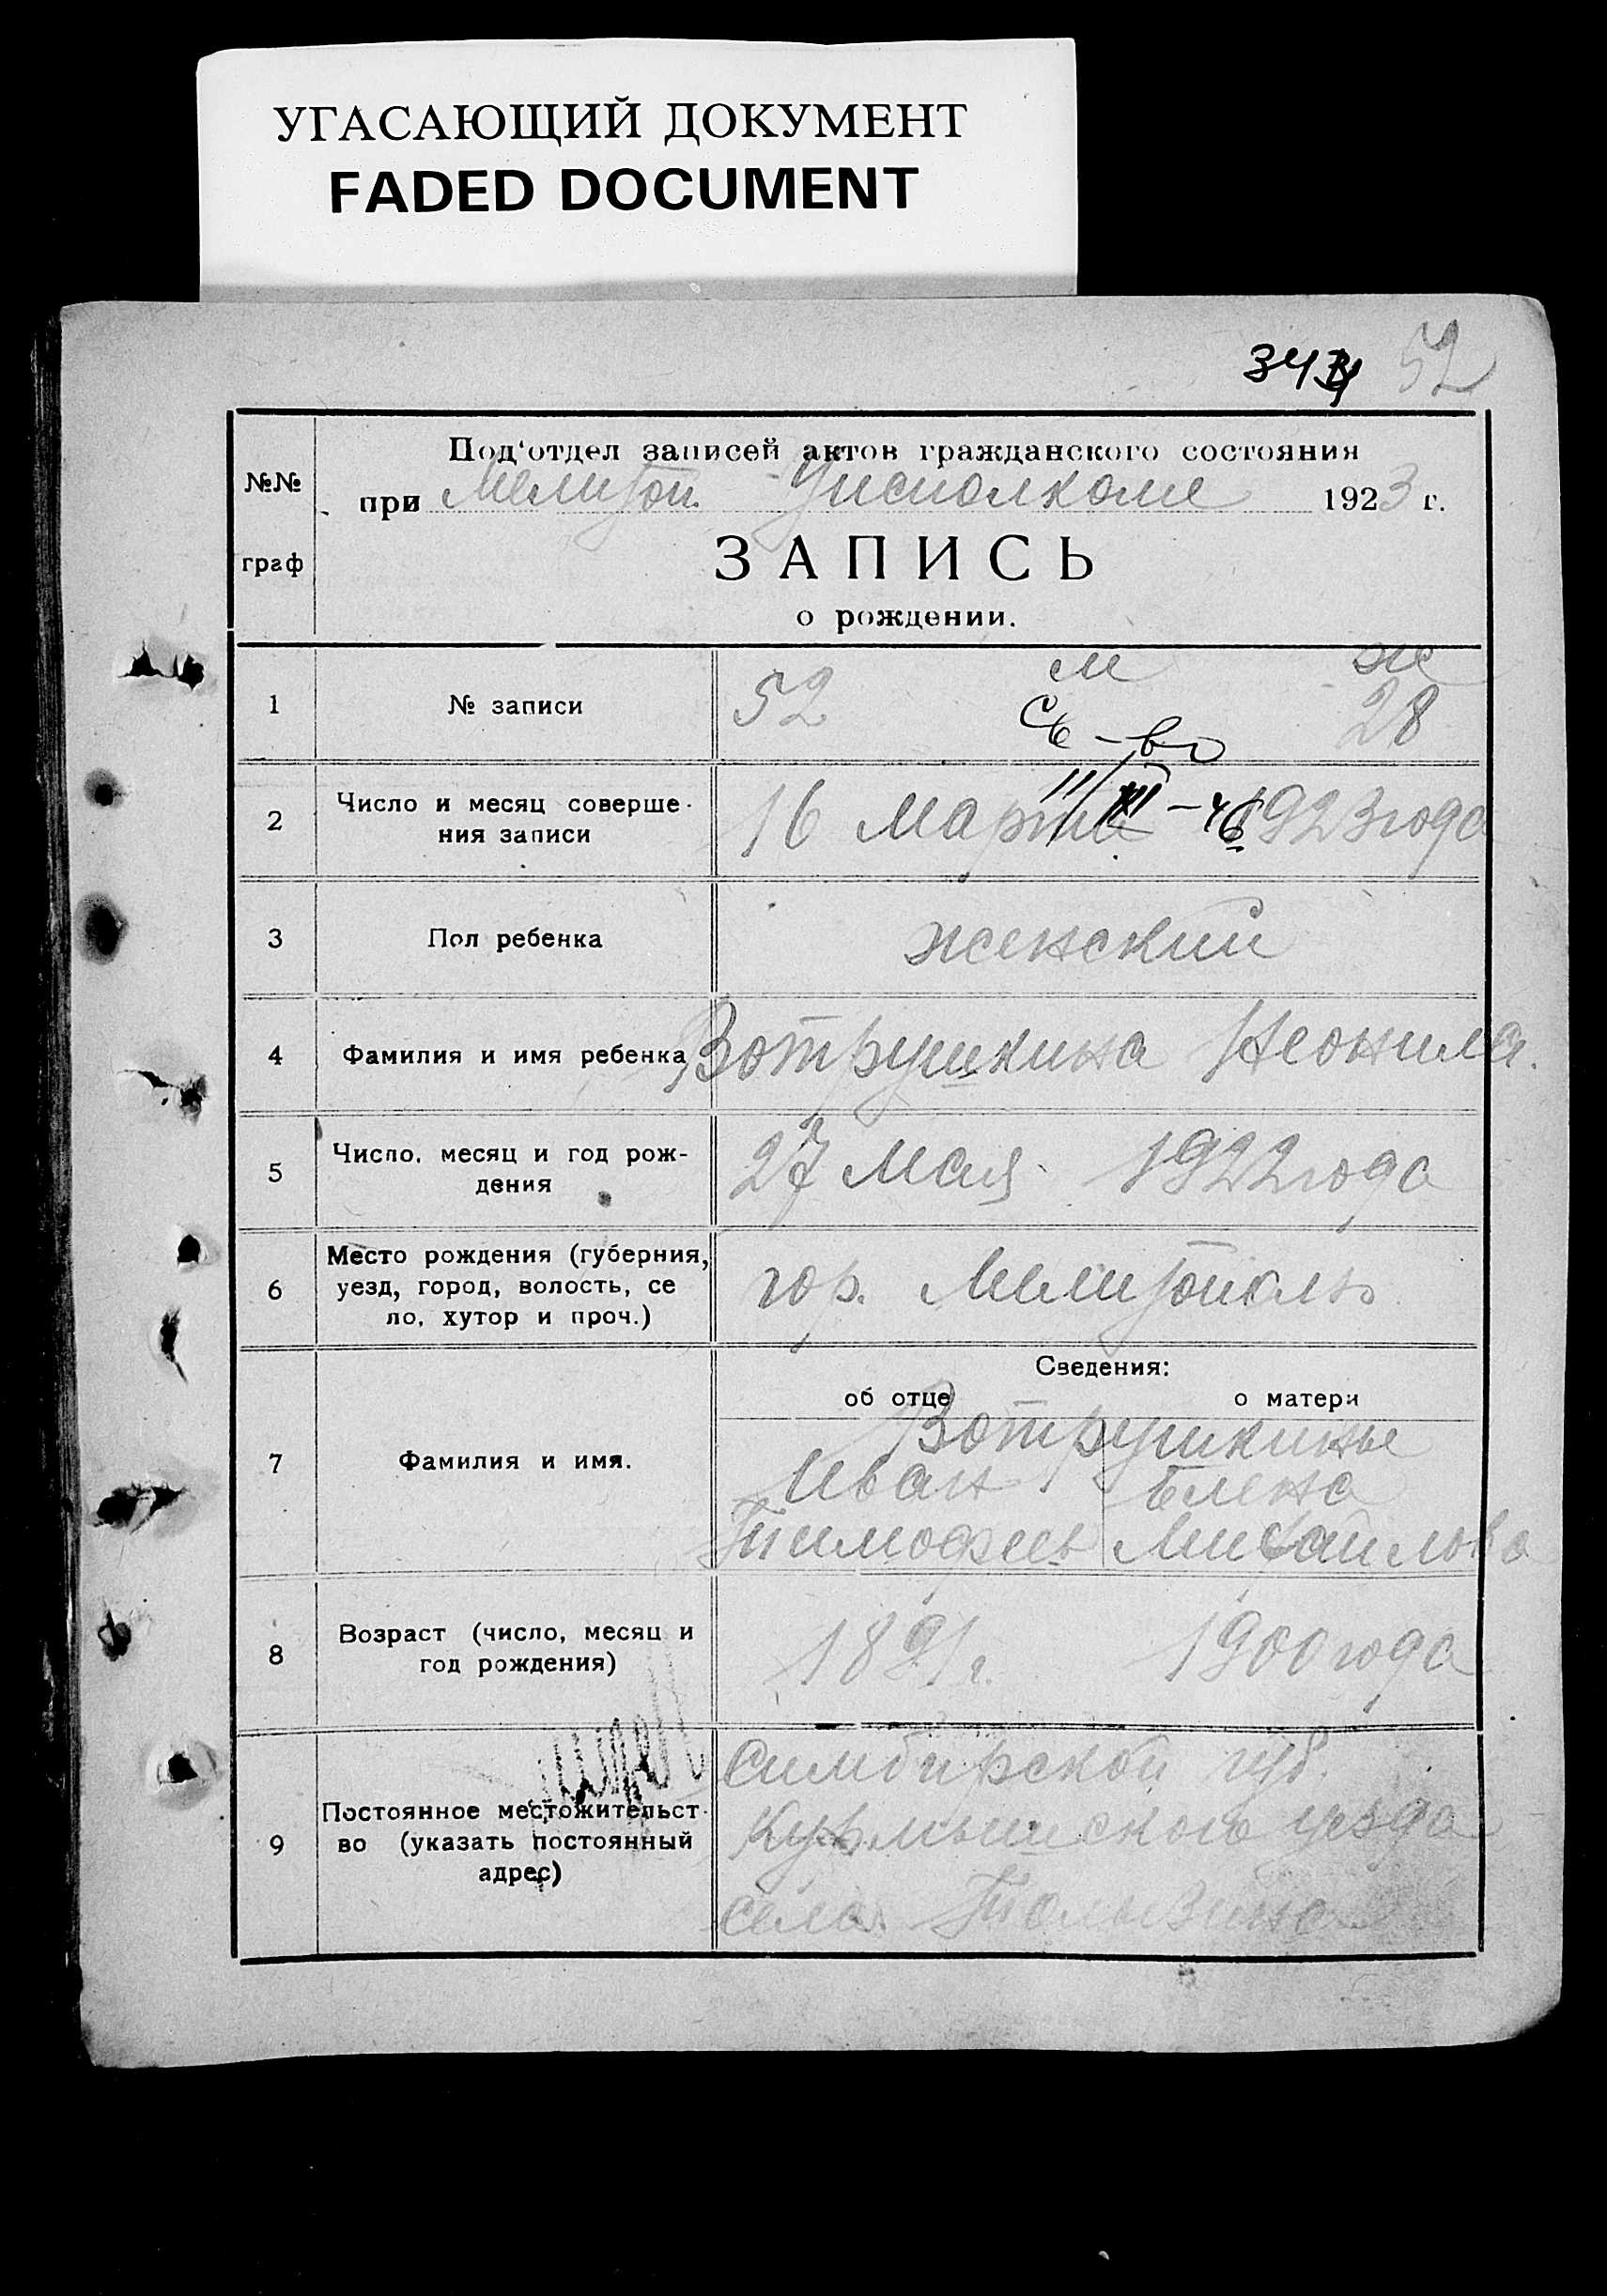 УГАСАЮЩИЙ ДОКУМЕНТ
FADED DOCUMENT
52
№№
граф
Под‘отдел записей актов гражданского состояния
при Мелитоп. Уисполкоме 1923 г.
ЗАПИСЬ
о рождении.
1
№ записи
52
м
ж
28
Св-во
2
Число и месяц соверше-
ния записи
16 марта 1923 года
11/III-46
3
Пол ребенка
женский
4
Фамилия и имя ребенка
Вотрушкина Неонила.
5
Число, месяц и год рож-
дения
27 мая 1922 года
6
Место рождения (губерния,
уезд, город, волость, се
ло, хутор и проч.)
гор. Мелитополь
7
Фамилия и имя.
Сведения:
об отце
о матери
Вотрушкины
Иван
Тимофеев
Елена
Михайлова
8
Возраст (число, месяц и
год рождения)
1891 г.
1900 года
9
Постоянное местожительст-
во (указать постоянный
адрес)
Симбирской губ.
Курмышского уезда
села